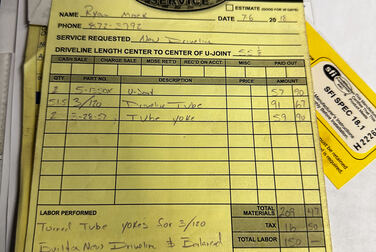 SERVICE
ESTIMATE (GOOD FOR 30 DAYS)
NAME Ryan
DATE 7-6 20 18
PHONE 872-5792
SERVICE REQUESTED New Driveline
DRIVELINE LENGTH CENTER TO CENTER OF U-JOINT 55
CASH SALE CHARGE SALE MDSE RET'D REC'D ON ACCT. MISC. PAID OUT
QTY. PART NO. DESCRIPTION PRICE AMOUNT
2 57 90
51.5 3/120 Driveline Tube 91 67
2 2-28-57 Tube yoke 59 90
LABOR PERFORMED
Turned Tube yokes for 3/120
Build a New Driveline & Balanced
TOTAL MATERIALS 209 47
TAX
TOTAL LABOR 150
SFI SPEC 18.1
H 2226